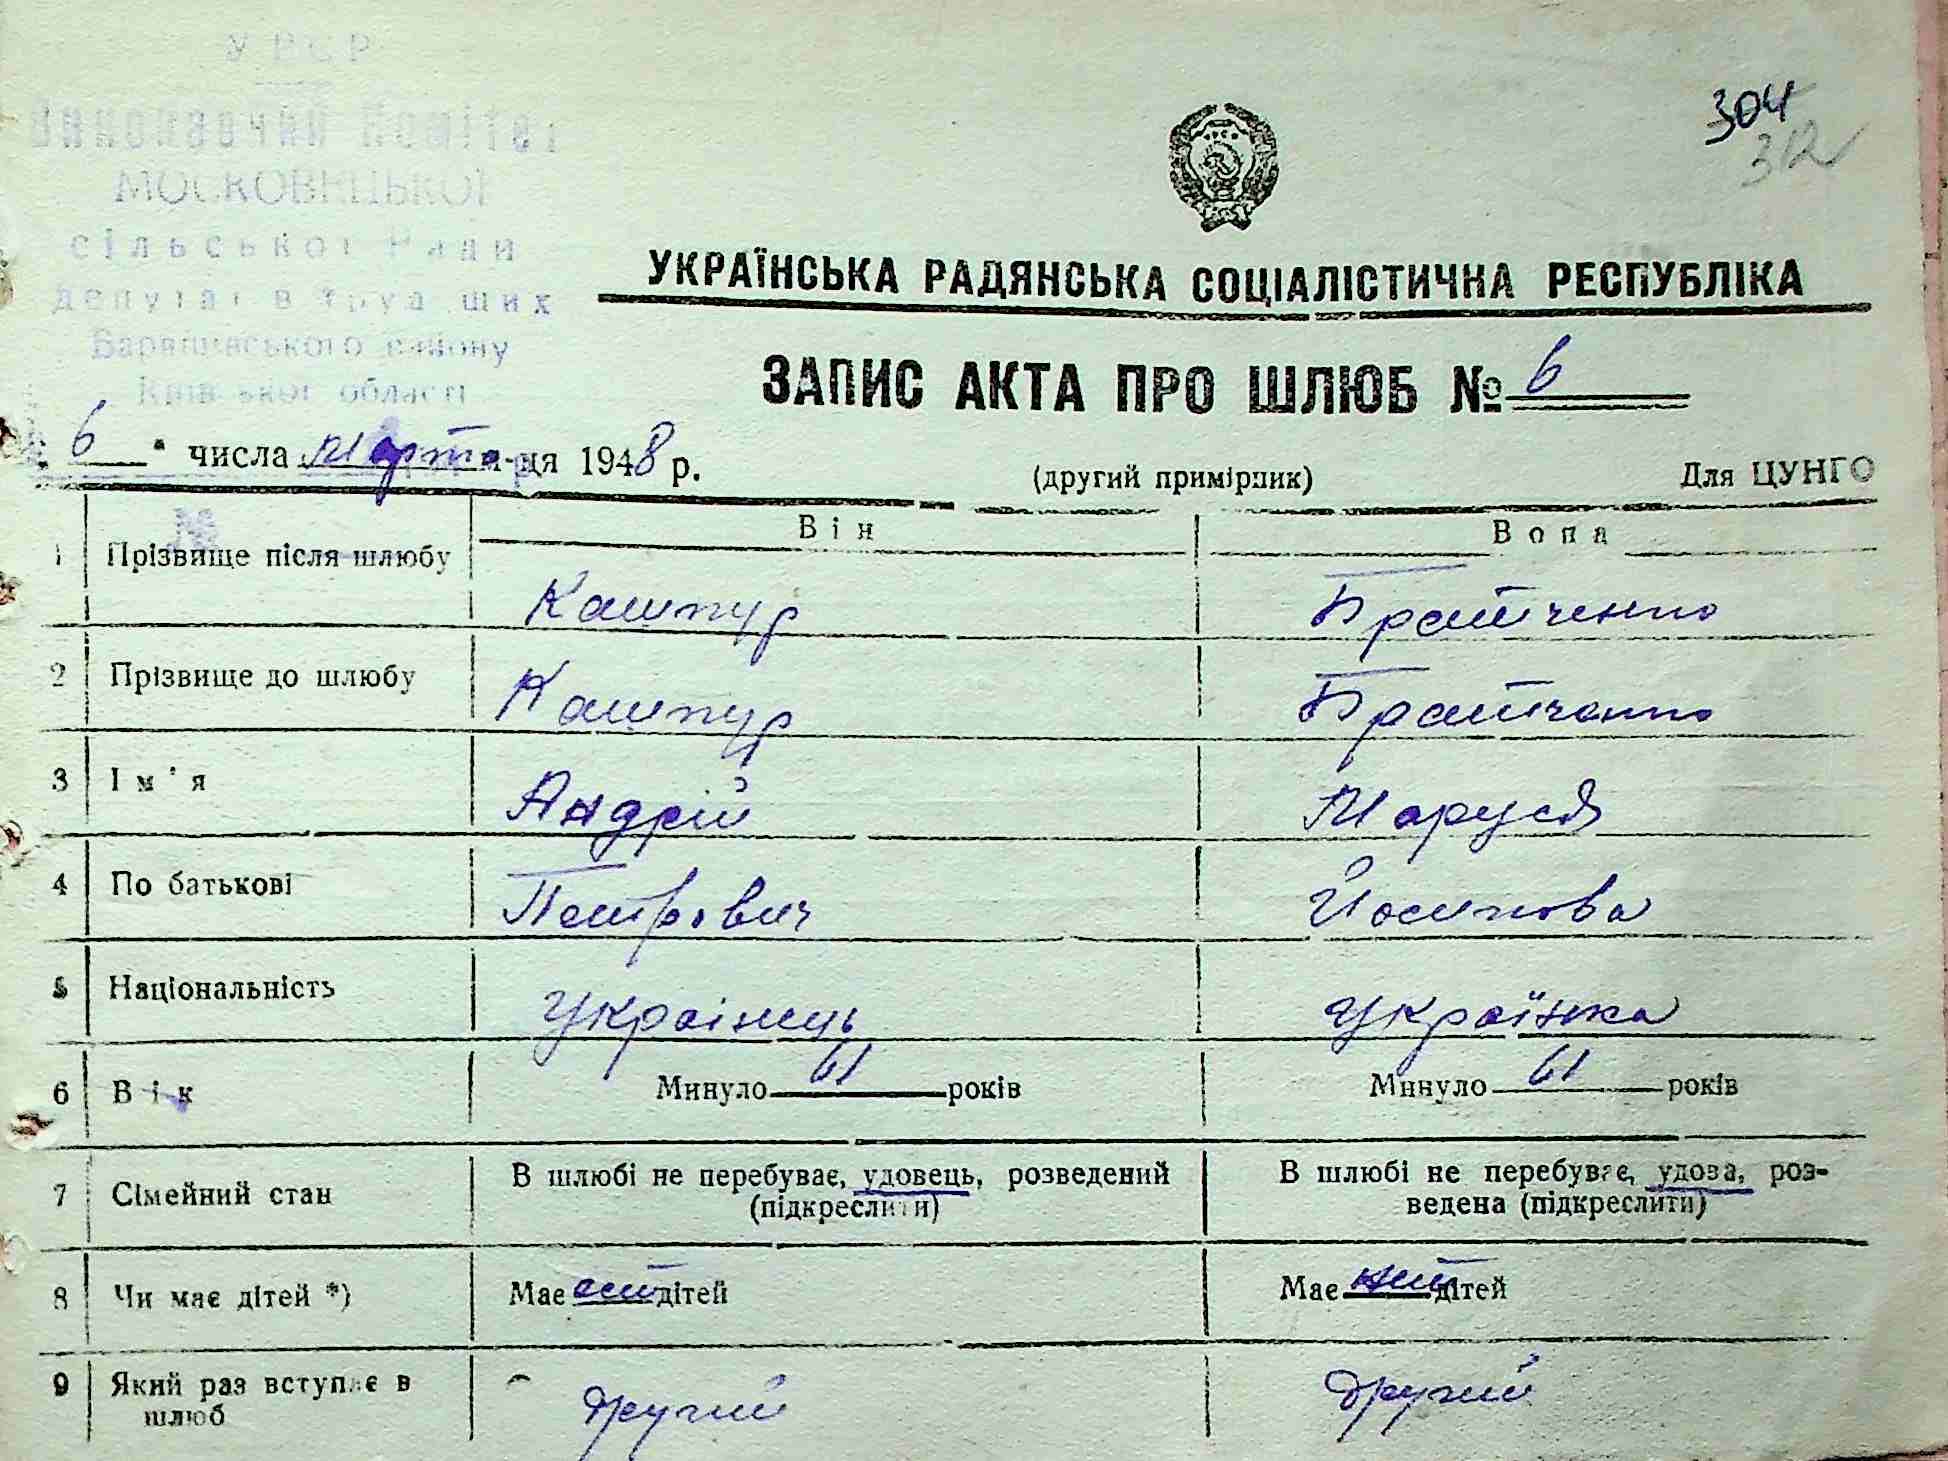 У Р С Р
Виконавчий Комітет
МОСКОВЕЦЬКОЇ
сільської Ради
депутатів трудящих
Баришівського району
Київської області
304
312
УКРАЇНСЬКА РАДЯНСЬКА СОЦІАЛІСТИЧНА РЕСПУБЛІКА
ЗАПИС АКТА ПРО ШЛЮБ № 6
6 " числа Марта м-ця 1948 р.
(другий примірник)
Для ЦУНГО
Він
Вона
1 Прізвище після шлюбу Кашпур Братченко
2 Прізвище до шлюбу Кашпур Братченко
3 Ім'я Андрій Маруся
4 По батькові Петрович Йосипова
5 Національність Українець Українка
6 Вік Минуло 61 років Минуло 61 років
7 Сімейний стан В шлюбі не перебуває, удовець, розведений (підкреслити) В шлюбі не перебуває, удова, роз-
ведена (підкреслити)
8 Чи має дітей *) Має єсть дітей Має нет дітей
9 Який раз вступає в шлюб другий другий